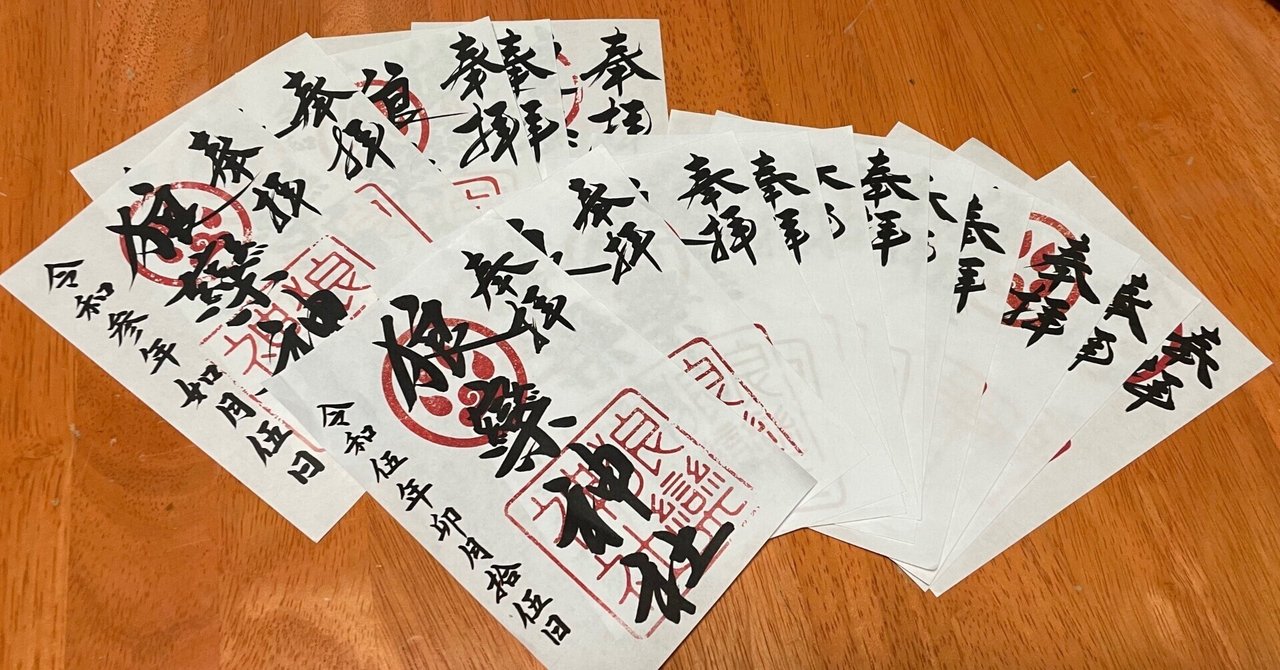 奉拝
奉拝
奉拝
奉拝
奉拝
狼欒神
令和参年如月伍日
奉拝
奉拝
奉拝
奉拝
奉拝
奉拝
奉拝
奉拝
奉拝
狼欒神社
令和伍年卯月拾伍日